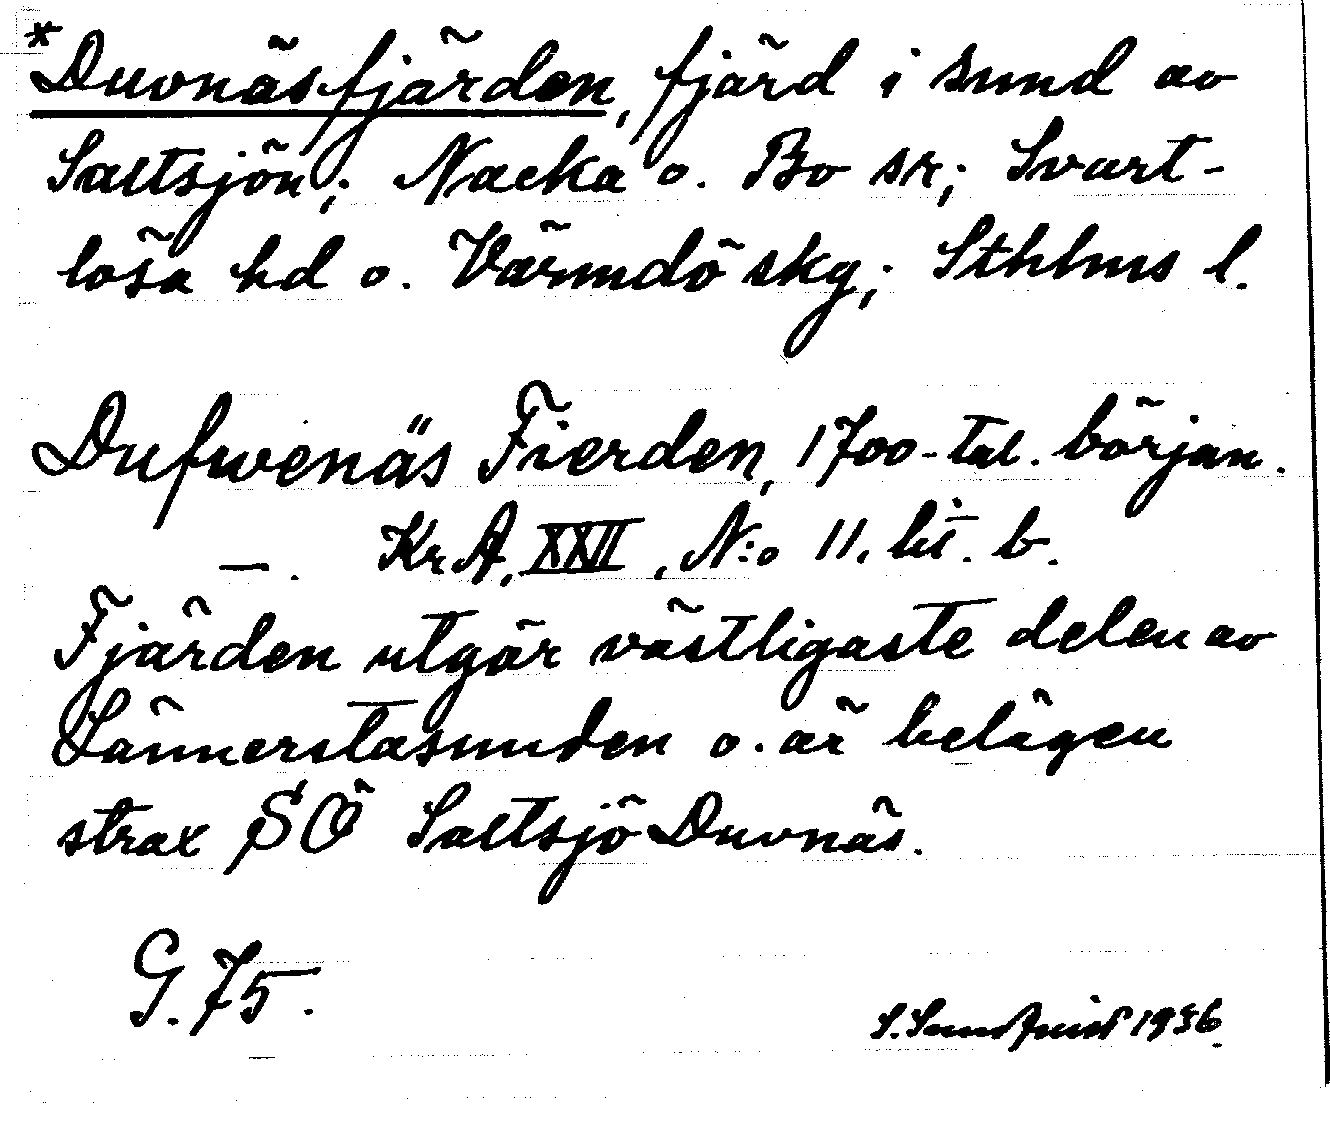 *Duvnäsfjärden, fjärd i sund av
Saltsjön; Nacka o. Bo sn; Svart-
lösa hd o. Värmdö skg; Sthlms l.
Dufwenäs Fierden, 1700-tal. början.
—. Kr A, XXII, N:o 11. lit. b.
Fjärden utgör västligaste delen av
Lännerstasunden o. är belägen
strax SÖ Saltsjö Duvnäs.
G. 75.
S. 1936.